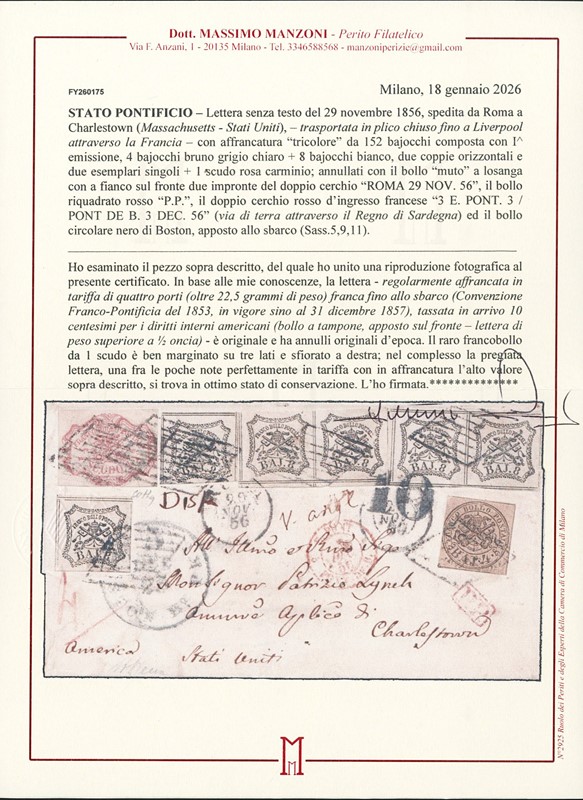 Dott. MASSIMO MANZONI - Perito Filatelico
Via F. Anzani, 1 - 20135 Milano - Tel. 3346588568 - manzoniperizie@gmail.com
FY260175
Milano, 18 gennaio 2026
STATO PONTIFICIO – Lettera senza testo del 29 novembre 1856, spedita da Roma a
Charlestown (Massachusetts - Stati Uniti), – trasportata in plico chiuso fino a Liverpool
attraverso la Francia – con affrancatura “tricolore” da 152 bajocchi composta con I^
emissione, 4 bajocchi bruno grigio chiaro + 8 bajocchi bianco, due coppie orizzontali e
due esemplari singoli + 1 scudo rosa carminio; annullati con il bollo “muto” a losanga
con a fianco sul fronte due impronte del doppio cerchio “ROMA 29 NOV. 56”, il bollo
riquadrato rosso “P.P.”, il doppio cerchio rosso d’ingresso francese “3 E. PONT. 3 /
PONT DE B. 3 DEC. 56” (via di terra attraverso il Regno di Sardegna) ed il bollo
circolare nero di Boston, apposto allo sbarco (Sass.5,9,11).
Ho esaminato il pezzo sopra descritto, del quale ho unito una riproduzione fotografica al
presente certificato. In base alle mie conoscenze, la lettera - regolarmente affrancata in
tariffa di quattro porti (oltre 22,5 grammi di peso) franca fino allo sbarco (Convenzione
Franco-Pontificia del 1853, in vigore sino al 31 dicembre 1857), tassata in arrivo 10
centesimi per i diritti interni americani (bollo a tampone, apposto sul fronte – lettera di
peso superiore a ½ oncia) - è originale e ha annulli originali d’epoca. Il raro francobollo
da 1 scudo è ben marginato su tre lati e sfiorato a destra; nel complesso la pregiata
lettera, una fra le poche note perfettamente in tariffa con in affrancatura l’alto valore
sopra descritto, si trova in ottimo stato di conservazione. L’ho firmata.**************
BAJ. 8
BAJ. 8
BAJ. 8
BAJ. 8
10
NOV
56
BAJ. 8
Monsignor Patrizio Lynch
Charlestown
America
Stati Uniti
N°2925 Ruolo dei Periti e degli Esperti della Camera di Commercio di Milano
M